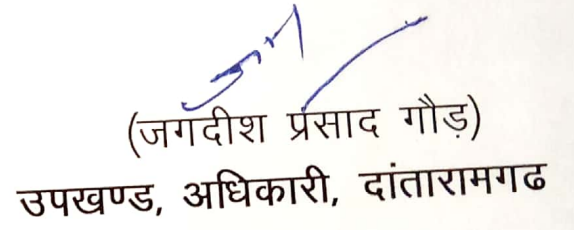 (जगदीश प्रसाद गौड़)
उपखण्ड, अधिकारी, दांतारामगढ